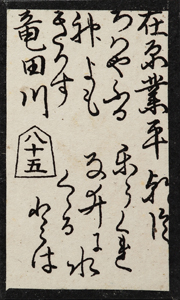 在原業平朝臣
ちはやふる
神よも
きかす
竜田川
からくれ
なゐに水
くゝる
とは
八十五